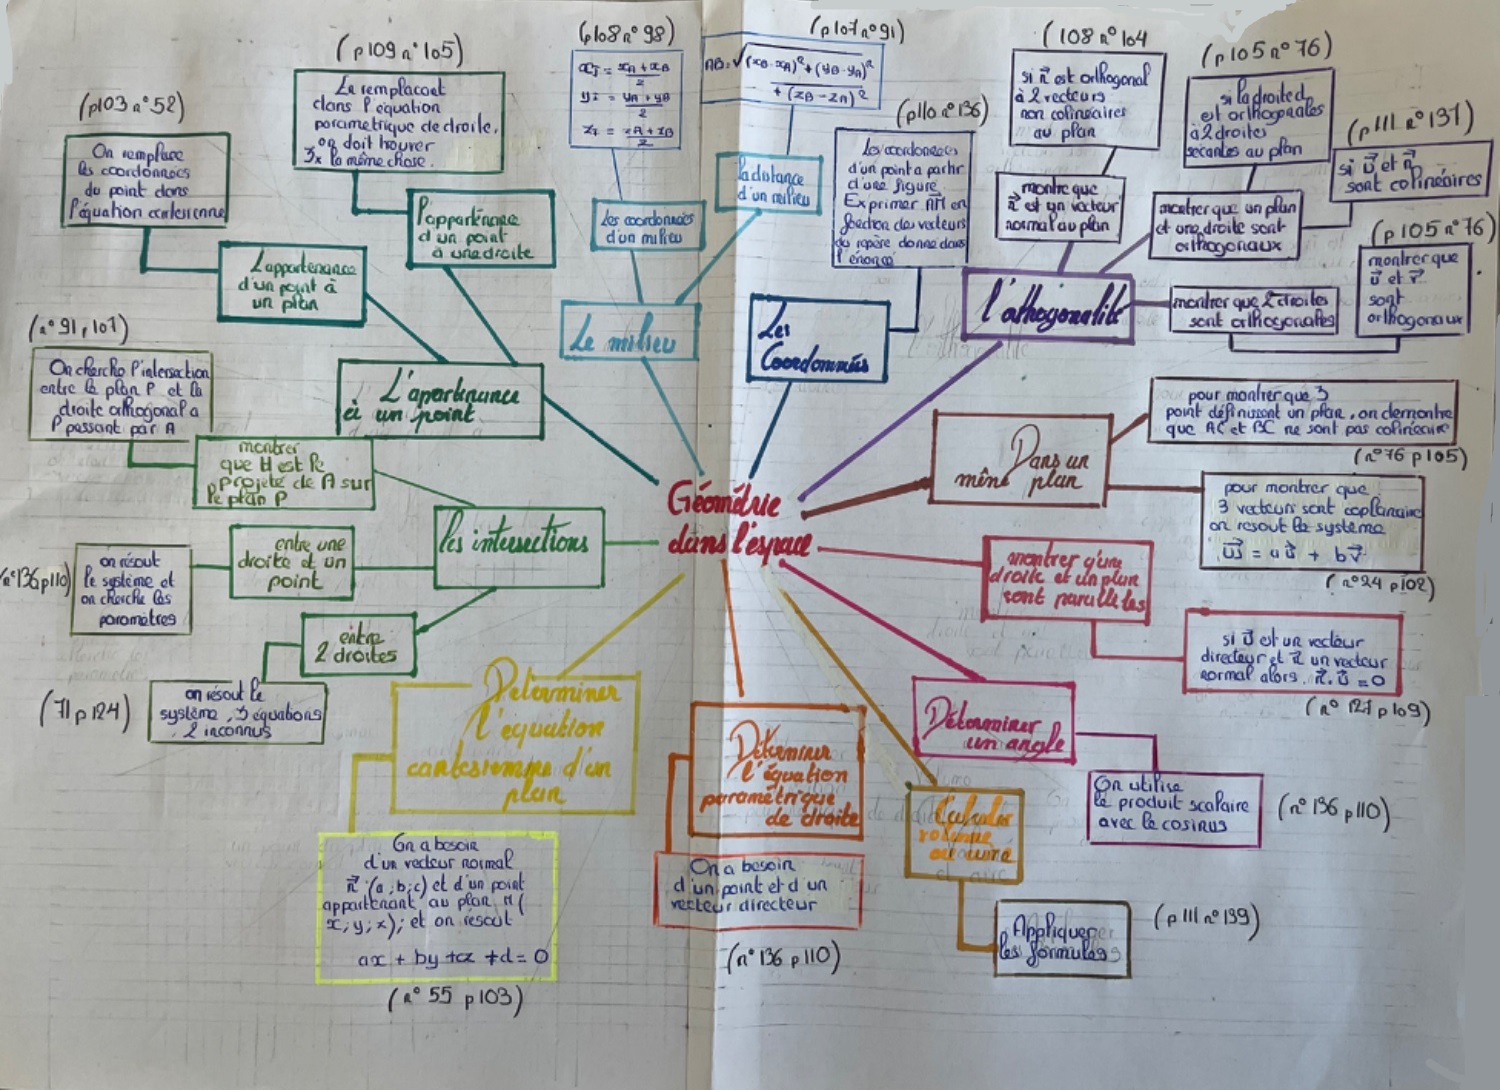 Géométrie
dans l'espace
(p103 n°52)
On remplace
les coordonnées
du point dans
l'équation cartésienne
L'appartenance
d'un point à
un plan
(p109 n°105)
Le remplacant
dans l'équation
parametrique de droite.
on doit trouver
3x la même chose.
l'appartenance
d'un point
à une droite
L'apartenance
à un point
(p108 n°98)
xI = xA + xB / 2
yI = yA + yB / 2
zI = zA + zB / 2
les coordonnées
d'un milieu
(p107 n°91)
AB = √(xB-xA)² + (yB-yA)²
+ (zB-zA)²
la distance
d'un milieu
Le milieu
(p110 n°136)
Les coordonnées
d'un point a partir
d'une figure
Exprimer AM en
fonction des vecteurs
du repère donne dans
l'énoncé
Les
Coordonnées
(108 n°104
si n est orthogonal
à 2 vecteurs
non colinéaires
au plan
montre que
n est un vecteur
normal au plan
(p105 n°76)
si la droite d
est orthogonales
à 2 droites
sécantes au plan
(p111 n°137)
si u et n
sont colinéaires
montrer que un plan
et une droite sont
orthogonaux
(p105 n°76)
montrer que
u et v
sont
orthogonaux
montrer que 2 droites
sont orthogonales
l'othogonalité
(n°91, 107)
On cherche l'intersection
entre le plan P et la
droite orthogonal a
P passant par A
montrer
que H est le
projeté de A sur
le plan P
les intersections
entre une
droite et un
point
(n°136 p110)
on résout
le système et
on cherche les
paramètres
entre
2 droites
(71 p124)
on résout le
système, 3 équations
2 inconnus
Dans un
même plan
pour montrer que 3
point définissent un plan, on demontre
que AC et BC ne sont pas colinéaire
(n°76 p105)
pour montrer que
3 vecteurs sont coplanaire
on resout le système
w = au + bv
(n°24 p102)
montrer q'une
droite et un plan
sont paralleles
si u est un vecteur
directeur et n un vecteur
normal alors. n.u = 0
(n°127 p109)
Déterminer
un angle
On utilise
le produit scalaire
avec le cosinus
(n°136 p110)
Calculer
volume
Appliquer
les formules
(p111 n°139)
Déterminer
l'équation
paramétrique
de droite
On a besoin
d'un point et d'un
vecteur directeur
(n°136 p110)
Déterminer
l'équation
cartesienne d'un
plan
On a besoin
d'un vecteur normal
n (a;b;c) et d'un point
appartenant au plan M(
x;y;x); et on résout
ax + by + cz + d = 0
(n°55 p103)